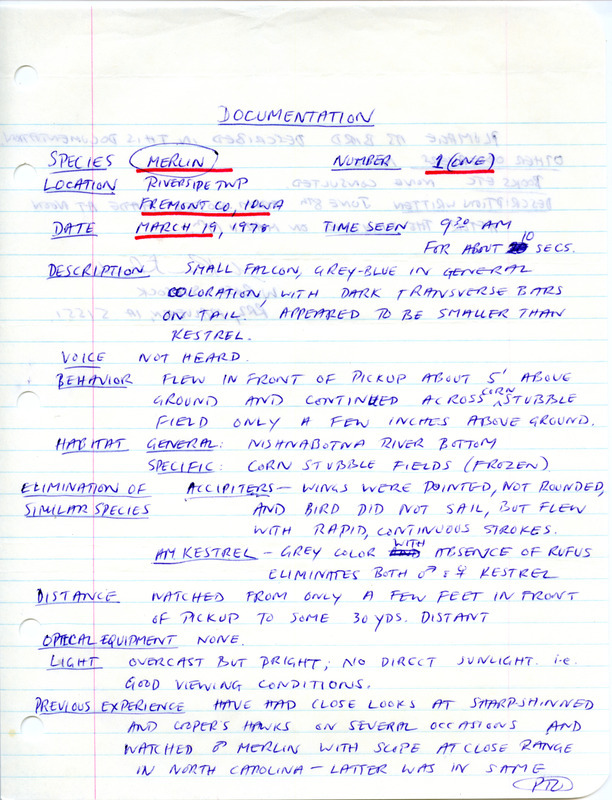 DOCUMENTATION
SPECIES MERLIN NUMBER 1 (ONE)
LOCATION RIVERSIDE TWP
FREMONT CO, IOWA
DATE MARCH 19, 1978 TIME SEEN 9:30 AM
FOR ABOUT 10 SECS.
DESCRIPTION SMALL FALCON, GREY-BLUE IN GENERAL
COLORATION WITH DARK TRANSVERSE BARS
ON TAIL. APPEARED TO BE SMALLER THAN
KESTREL.
VOICE NOT HEARD.
BEHAVIOR FLEW IN FRONT OF PICKUP ABOUT 5' ABOVE
GROUND AND CONTINUED ACROSS CORN STUBBLE
FIELD ONLY A FEW INCHES ABOVE GROUND.
HABITAT GENERAL: NISHNABOTNA RIVER BOTTOM
SPECIFIC: CORN STUBBLE FIELDS (FROZEN)
ELIMINATION OF ACCIPITERS - WINGS WERE POINTED, NOT ROUNDED,
SIMILAR SPECIES AND BIRD DID NOT SAIL, BUT FLEW
WITH RAPID, CONTINUOUS STROKES.
AM KESTREL - GREY COLOR WITH ABSENCE OF RUFUS
ELIMINATES BOTH ♂ & ♀ KESTREL
DISTANCE WATCHED FROM ONLY A FEW FEET IN FRONT
OF PICKUP TO SOME 30 YDS. DISTANT
OPTICAL EQUIPMENT NONE.
LIGHT OVERCAST BUT BRIGHT; NO DIRECT SUNLIGHT. i.e.
GOOD VIEWING CONDITIONS.
PREVIOUS EXPERIENCE HAVE HAD CLOSE LOOKS AT SHARP-SHINNED
AND COOPER'S HAWKS ON SEVERAL OCCASIONS AND
WATCHED ♂ MERLIN WITH SCOPE AT CLOSE RANGE
IN NORTH CAROLINA - LATTER WAS IN SAME